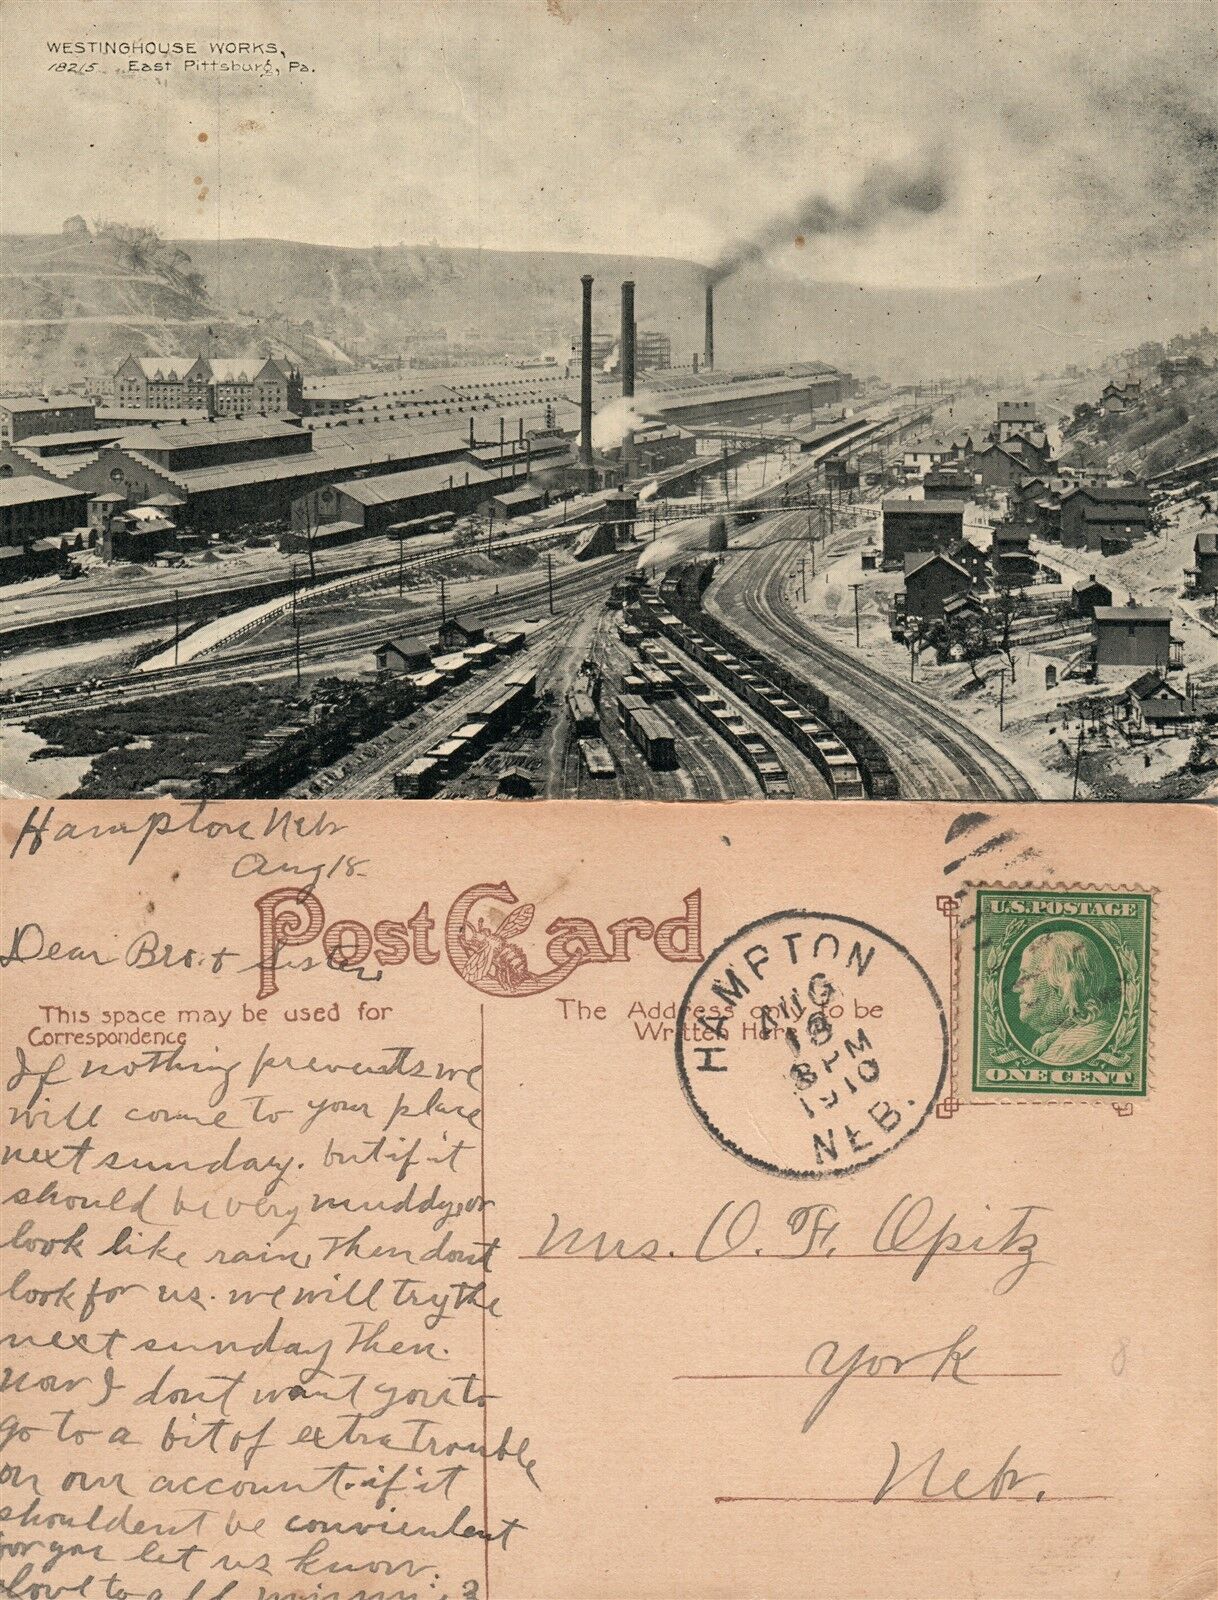 WESTINGHOUSE WORKS,
18215. East Pittsburg, Pa.
Hampton Nebr
Aug 18-
Post Card
Dear Bro. & Sister,
This space may be used for
Correspondence
The Address only to be
Written Here
HAMPTON
AUG
18
3 PM
1910
NEB.
U.S. POSTAGE
ONE CENT
If nothing prevents we
will come to your place
next sunday. but if it
should be very muddy, or
look like rain, then dont
look for us. we will try the
next sunday then.
now I dont want you to
go to a bit of extra trouble
on our account. if it
shouldent be convienlent
for you let us know.
love to all
Mrs. O. F. Opitz
York
Nebr.